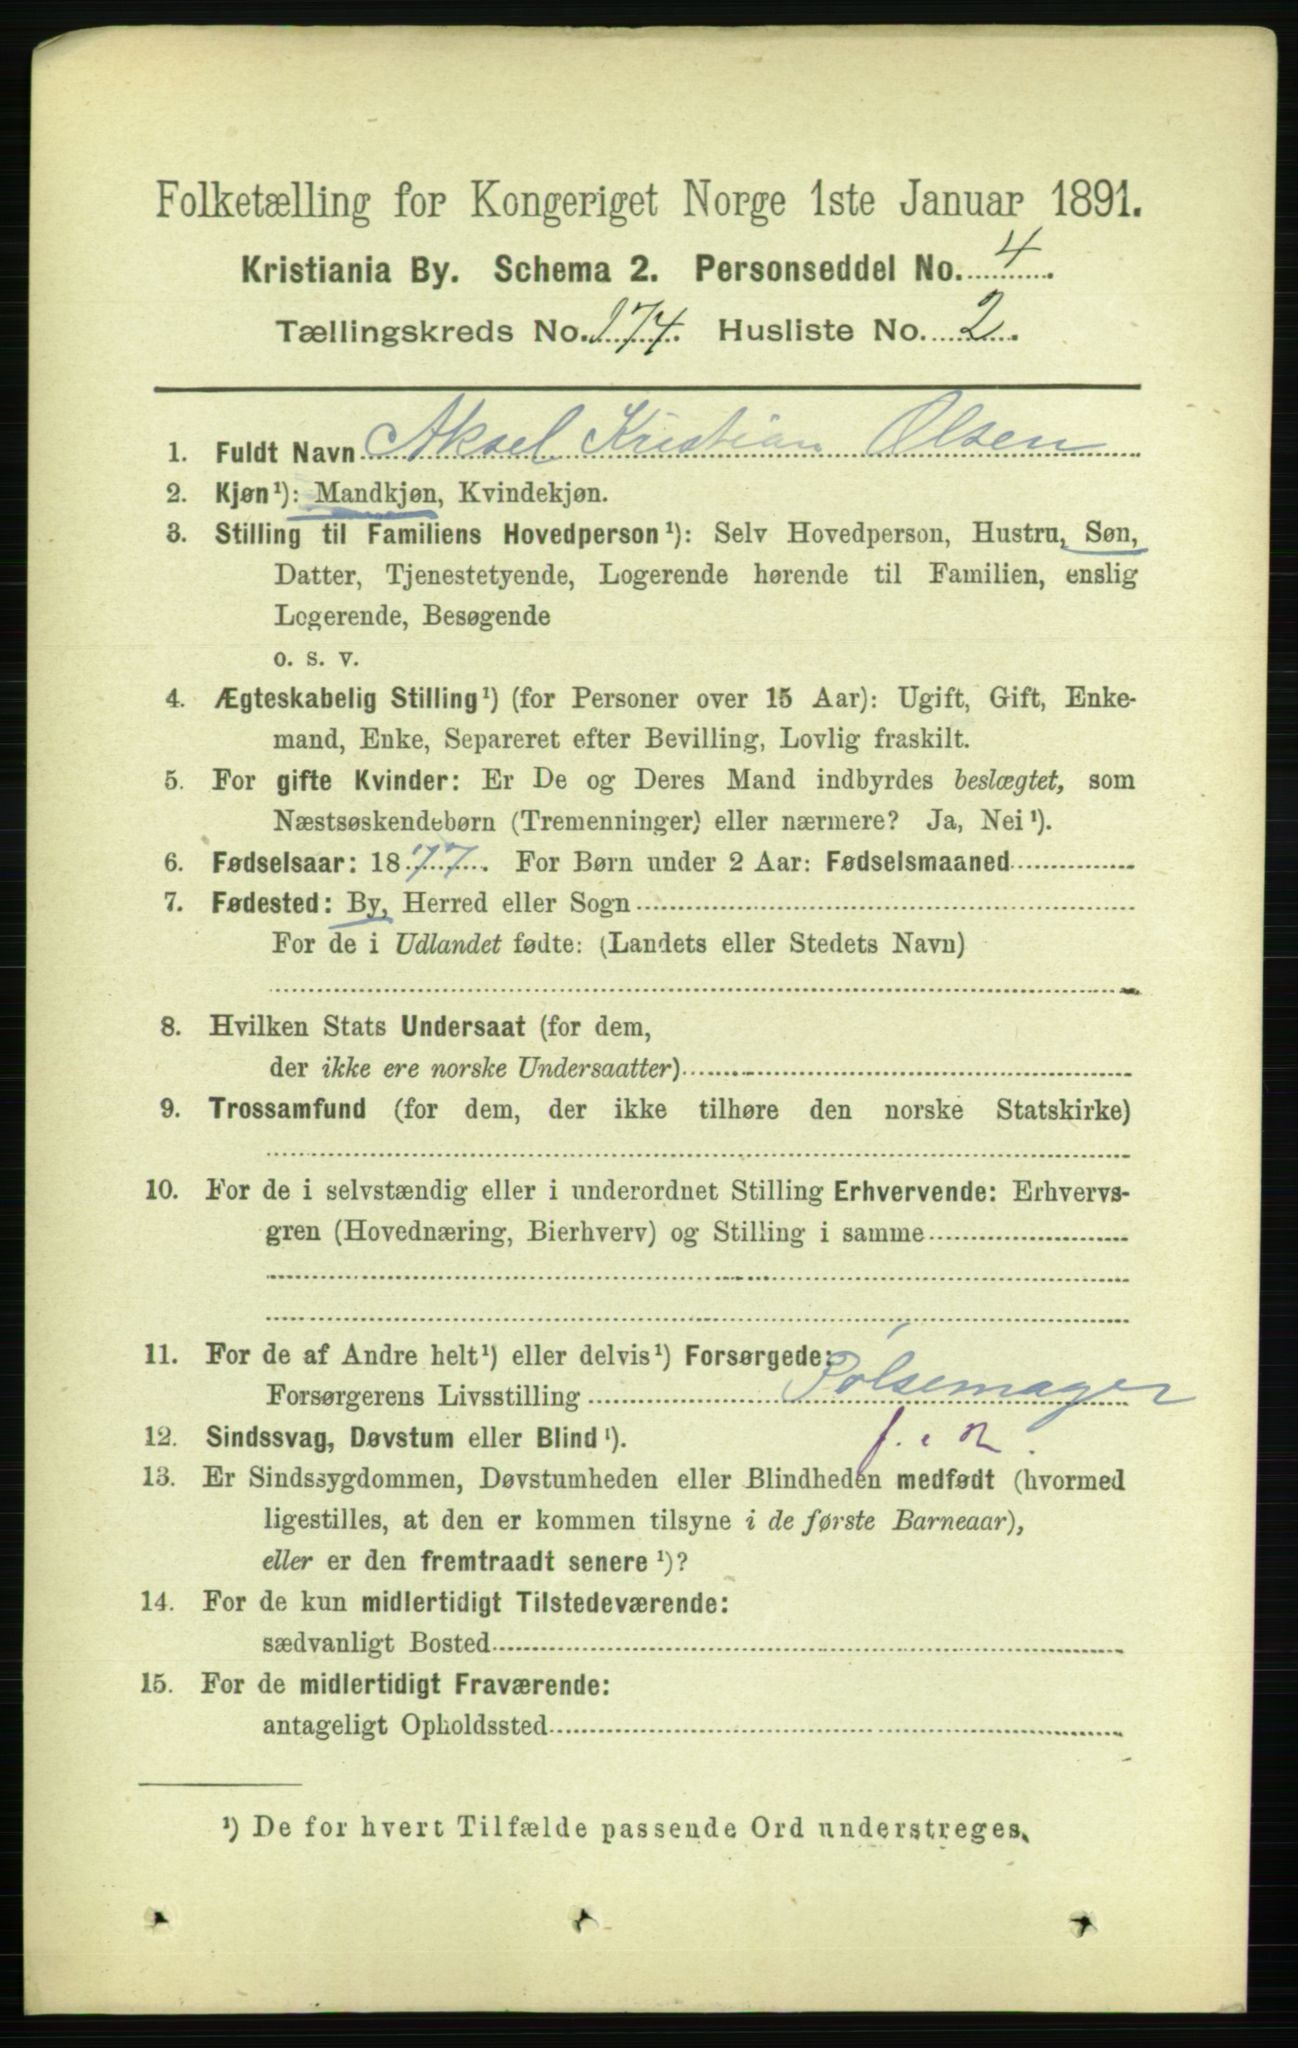 Folketælling for Kongeriget Norge 1ste Januar 1891.
Kristiania By. Schema 2. Personseddel No. 4.
Tællingskreds No. 174. Husliste No. 2.
1. Fuldt Navn Aksel Kristian Olsen
2. Kjøn¹): Mandkjøn, Kvindekjøn.
3. Stilling til Familiens Hovedperson¹): Selv Hovedperson, Hustru, Søn,
Datter, Tjenestetyende, Logerende hørende til Familien, enslig
Logerende, Besøgende
o. s. v.
4. Ægteskabelig Stilling¹) (for Personer over 15 Aar): Ugift, Gift, Enke-
mand, Enke, Separeret efter Bevilling, Lovlig fraskilt.
5. For gifte Kvinder: Er De og Deres Mand indbyrdes beslægtet, som
Næstsøskendebørn (Tremenninger) eller nærmere? Ja, Nei¹).
6. Fødselsaar: 1877. For Børn under 2 Aar: Fødselsmaaned
7. Fødested: By, Herred eller Sogn
For de i Udlandet fødte: (Landets eller Stedets Navn)
8. Hvilken Stats Undersaat (for dem,
der ikke ere norske Undersaatter)
9. Trossamfund (for dem, der ikke tilhøre den norske Statskirke)
10. For de i selvstændig eller i underordnet Stilling Erhvervende: Erhvervs-
gren (Hovednæring, Bierhverv) og Stilling i samme
11. For de af Andre helt¹) eller delvis¹) Forsørgede:
Forsørgerens Livsstilling Pølsemager
12. Sindssvag, Døvstum eller Blind¹).
13. Er Sindssygdommen, Døvstumheden eller Blindheden medfødt (hvormed
ligestilles, at den er kommen tilsyne i de første Barneaar),
eller er den fremtraadt senere¹)?
14. For de kun midlertidigt Tilstedeværende:
sædvanligt Bosted
15. For de midlertidigt Fraværende:
antageligt Opholdssted
¹) De for hvert Tilfælde passende Ord understreges.